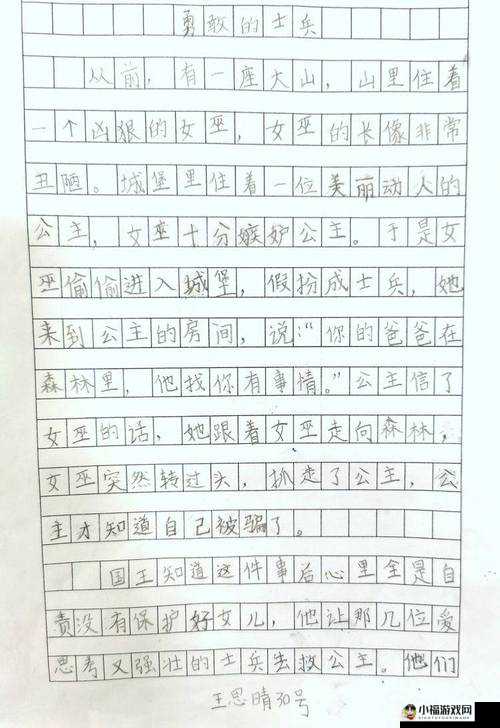 勇敢的士兵
从前，有一座大山，山里住着
一个凶狠的女巫，女巫的长像非常
丑陋。城堡里住着一位美丽动人的
公主，女巫十分嫉妒公主。于是女
巫偷偷进入城堡，假扮成士兵，她
来到公主的房间，说：“你的爸爸在
森林里，他找你有事情。”公主信了
女巫的话，她跟着女巫走向森林，
女巫突然转过头，抓走了公主，公
主才知道自己被骗了。
国王知道这件事后心里全是自
责没有保护好女儿，他让那几位爱
思考又强壮的士兵去救公主。他们
王思晴30号
小福游戏网